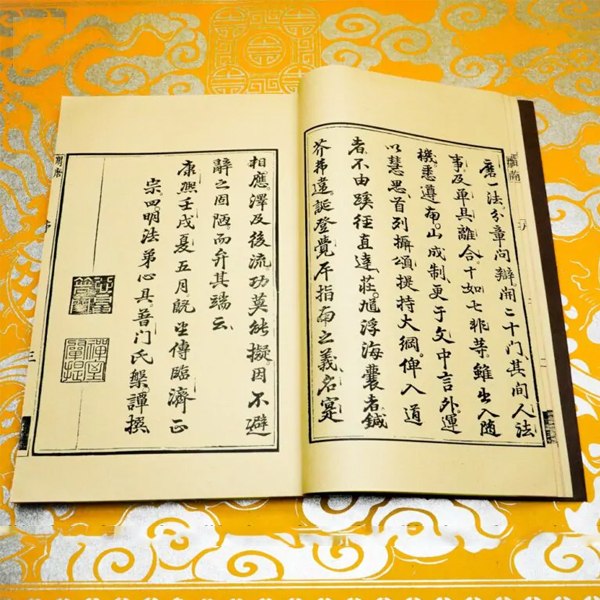 鹿一法分章问辩开二十门其间人法
事及单具离合十如七非等虽出入随
機悉遵南山成制更于文中言外運
以慧思首列擀頌提持大綱俾入道
者不由蹊徑直達莊馗浮海囊者鍼
芥弗違誕登覺岸指南之義名寔
相應澤及後流功莫能擬因不避
辭之固陋而弁其端云
康熙壬戌夏五月既望傳臨濟正
宗四明法弟心具普门氏槃譚撰